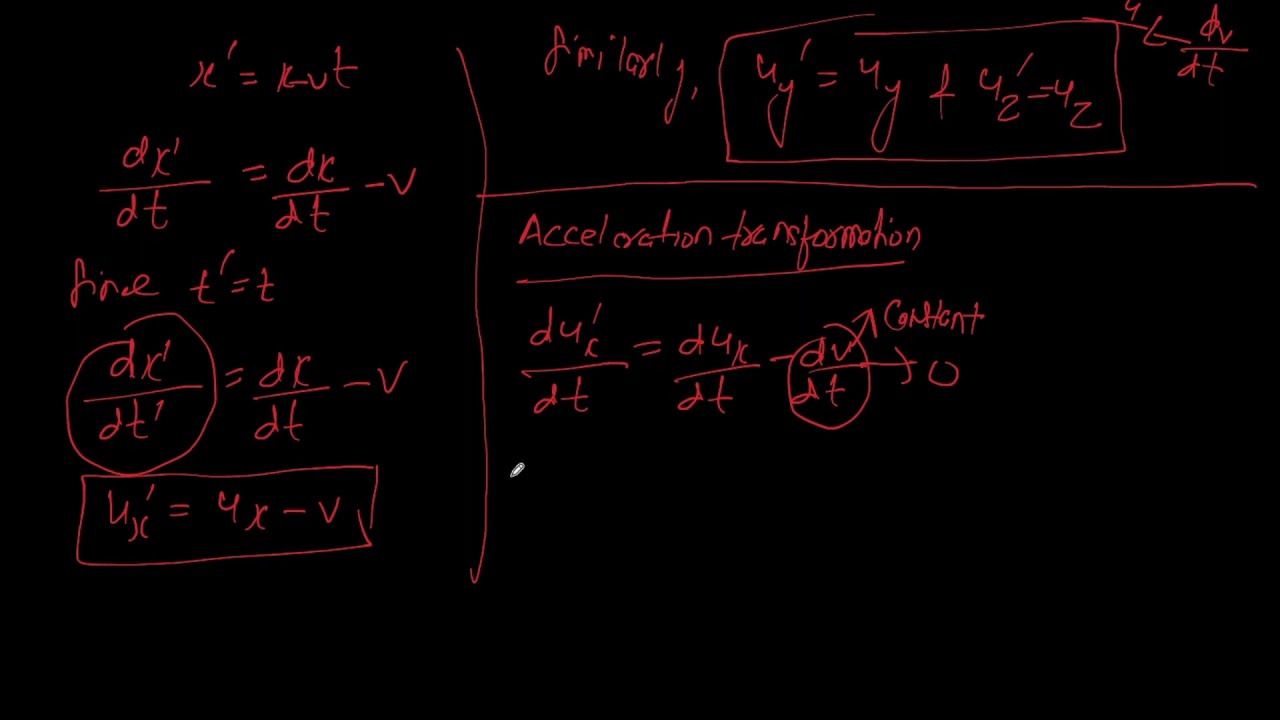 x' = x-vt
dx'/dt = dx/dt - v
Since t' = t
dx'/dt' = dx/dt - v
ux' = ux - v
Similarly, uy' = uy & uz' = uz
dv/dt
Acceleration transformation
dux'/dt = dux/dt - dv/dt → 0
Constant